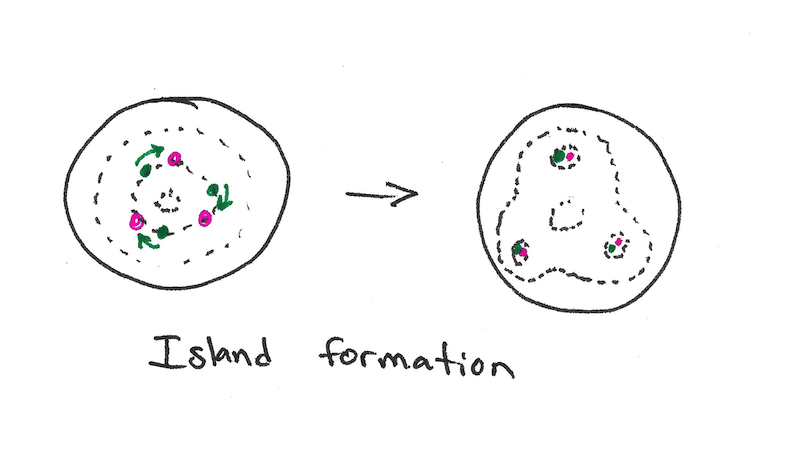 Island formation